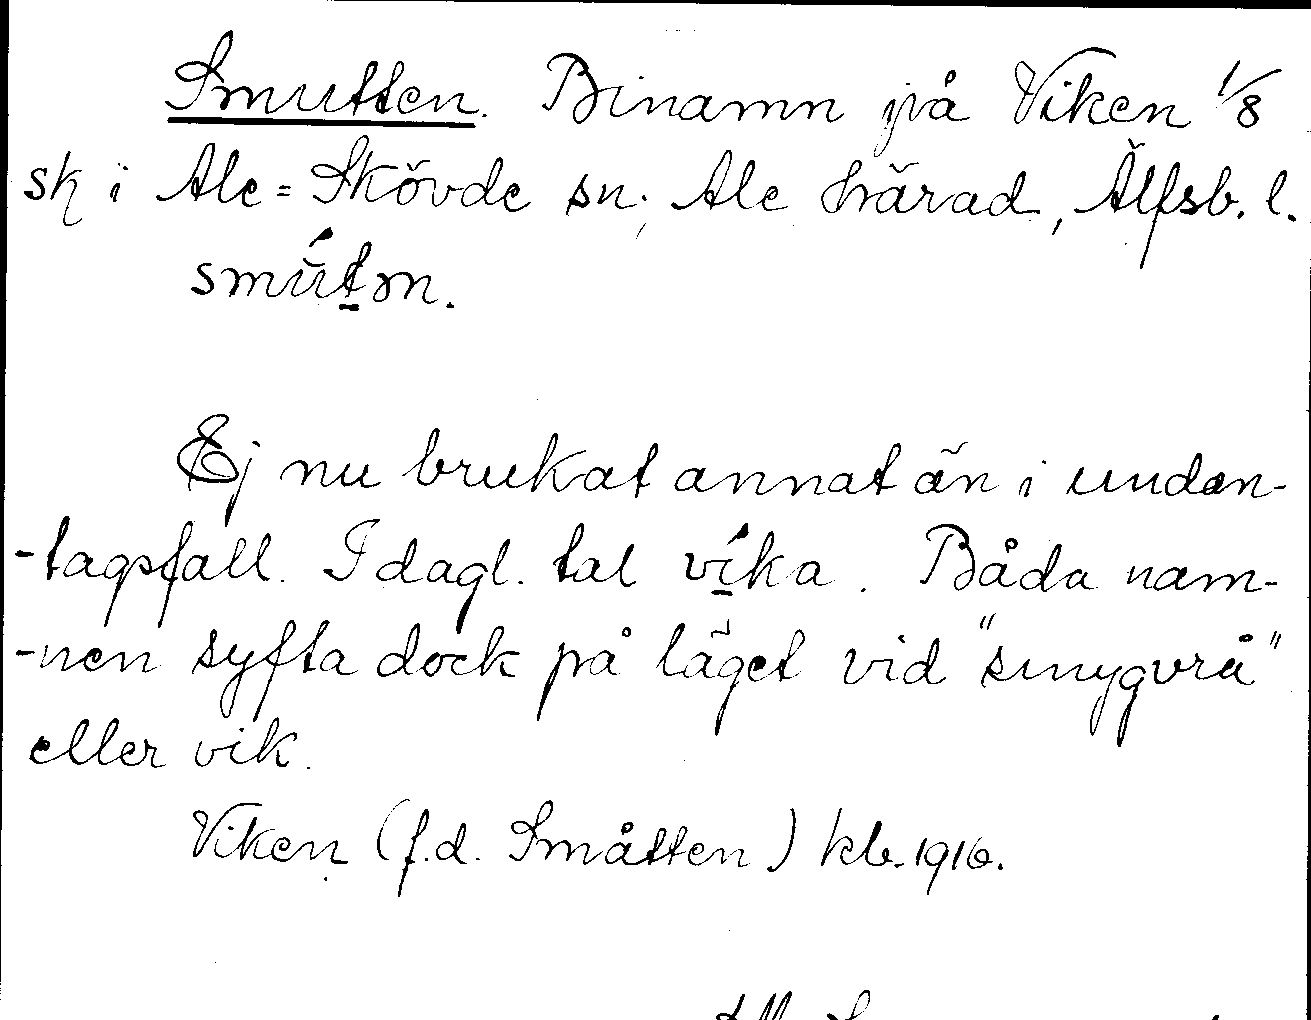 Smutten. Binamn på Viken 1/8
sk i Ale=Skövde sn; Ale härad, Älfsb. l.
smútn.
Ej nu brukat annat än i undan-
-tagsfall. I dagl. tal víka. Båda nam-
-nen syfta dock på läget vid "smygvrå"
eller vik.
Viken (f.d. Småtten) klb. 1916.